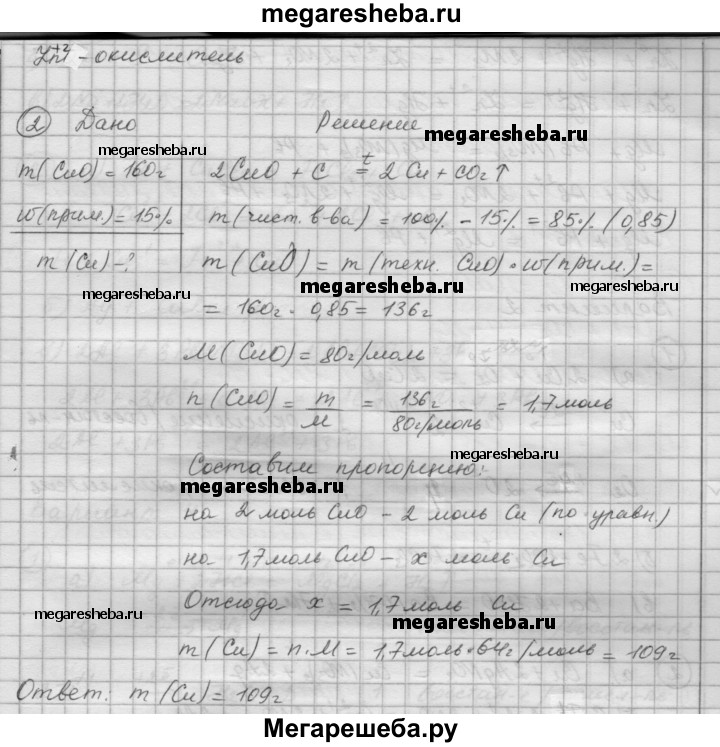 megaresheba.ru
Zn⁺² - окислитель
② Дано Решение
megaresheba.ru
megaresheba.ru
m(CuO) = 160г 2CuO + C =ᵗ 2Cu + CO₂↑
w(прим.) = 15% m(чист. в-ва) = 100% - 15% = 85% (0,85)
m(Cu) - ? m(CuO) = m(техн. CuO) · w(прим.) =
megaresheba.ru megaresheba.ru megaresheba.ru
= 160г · 0,85 = 136г
M(CuO) = 80г/моль
n(CuO) = m/M = 136г/80г/моль = 1,7моль
Составим пропорцию:
megaresheba.ru
на 2 моль CuO - 2 моль Cu (по уравн.)
на 1,7моль CuO - x моль Cu
Отсюда x = 1,7моль Cu
megaresheba.ru
megaresheba.ru
m(Cu) = n·M = 1,7моль·64г/моль = 109г
Ответ: m(Cu) = 109г
Мегарешеба.ру